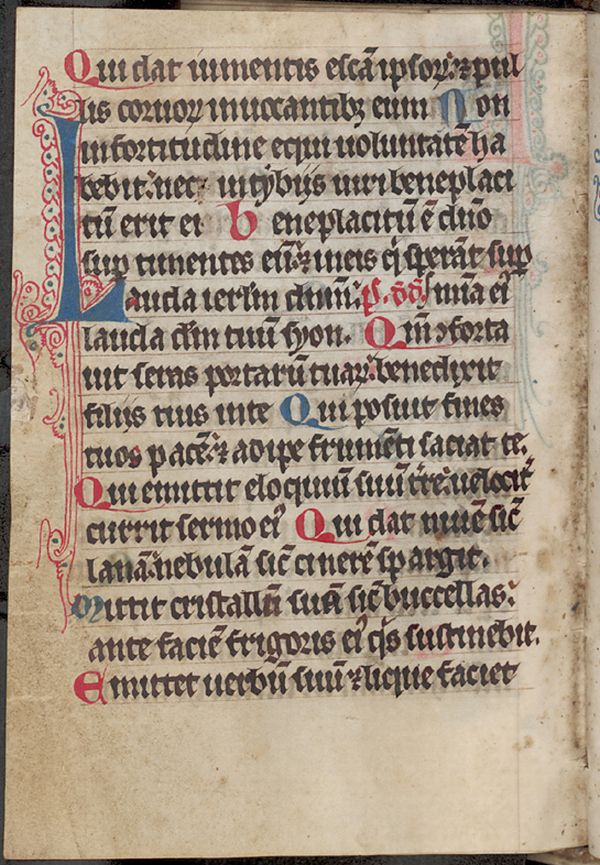 Qui dat iumentis escā ipsoꝝ: ⁊ pul
lis coruoꝝ inuocantibꝫ eum Non
in fortitudine equi uoluntatē ha
bebit: nec in tybijs uiri beneplaci
tū erit ei Beneplacitū ē dn̄o
sup timentes eū: ⁊ in eis q̇ sperāt sup
Lauda ierlm dnm̄: ps. dd. mīa eiꝰ
lauda dm̄ tuum syon. Qm̄ ꝯforta
uit seras portarū tuaꝝ: benedixit
filijs tuis in te Qui posuit fines
tuos pacē: ⁊ adipe frumēti saciat te.
Qui emittit eloquiū suū tr̄e: uelocit̄
currit sermo eiꝰ Qui dat niuē sic̄
lanā: nebulā sic̄ cinerē spargit.
Mittit cristallū suā sic̄ buccellas:
ante faciē frigoris eiꝰ q̇s sustinebit.
Emittet uerbū suū ⁊ liquefaciet